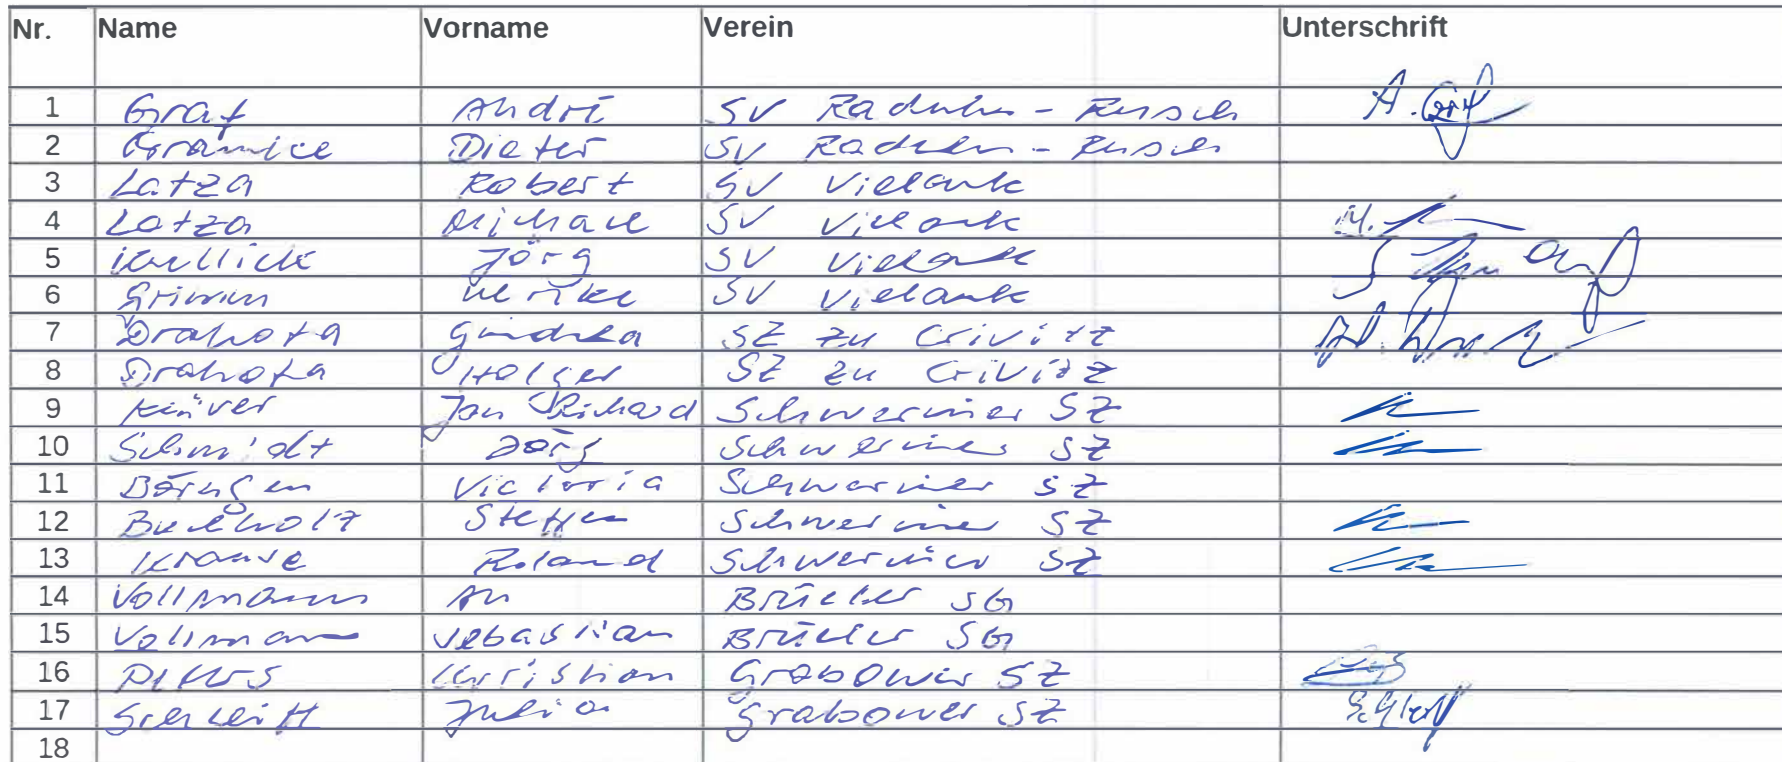 Nr. Name Vorname Verein Unterschrift
1 Graf André SV Raduhn - Rusch A. Graf
2 Dieter SV Raduhn - Rusch
3 Latza Robert SV Vielank
4 Latza Michael SV Vielank M.
5 Kullick Jörg SV Vielank
6 Grimm Ulrike SV Vielank
7 Drahota SZ zu Crivitz
8 Drahota Holger SZ zu Crivitz
9 Jan Richard Schweriner SZ
10 Schmidt Jörg Schweriner SZ
11 Victoria Schweriner SZ
12 Buchholz Steffen Schweriner SZ
13 Krause Roland Schweriner SZ
14 Vollmann Brüeler SG
15 Vollmann Sebastian Brüeler SG
16 Peters Christian Grabower SZ
17 Julia Grabower SZ
18